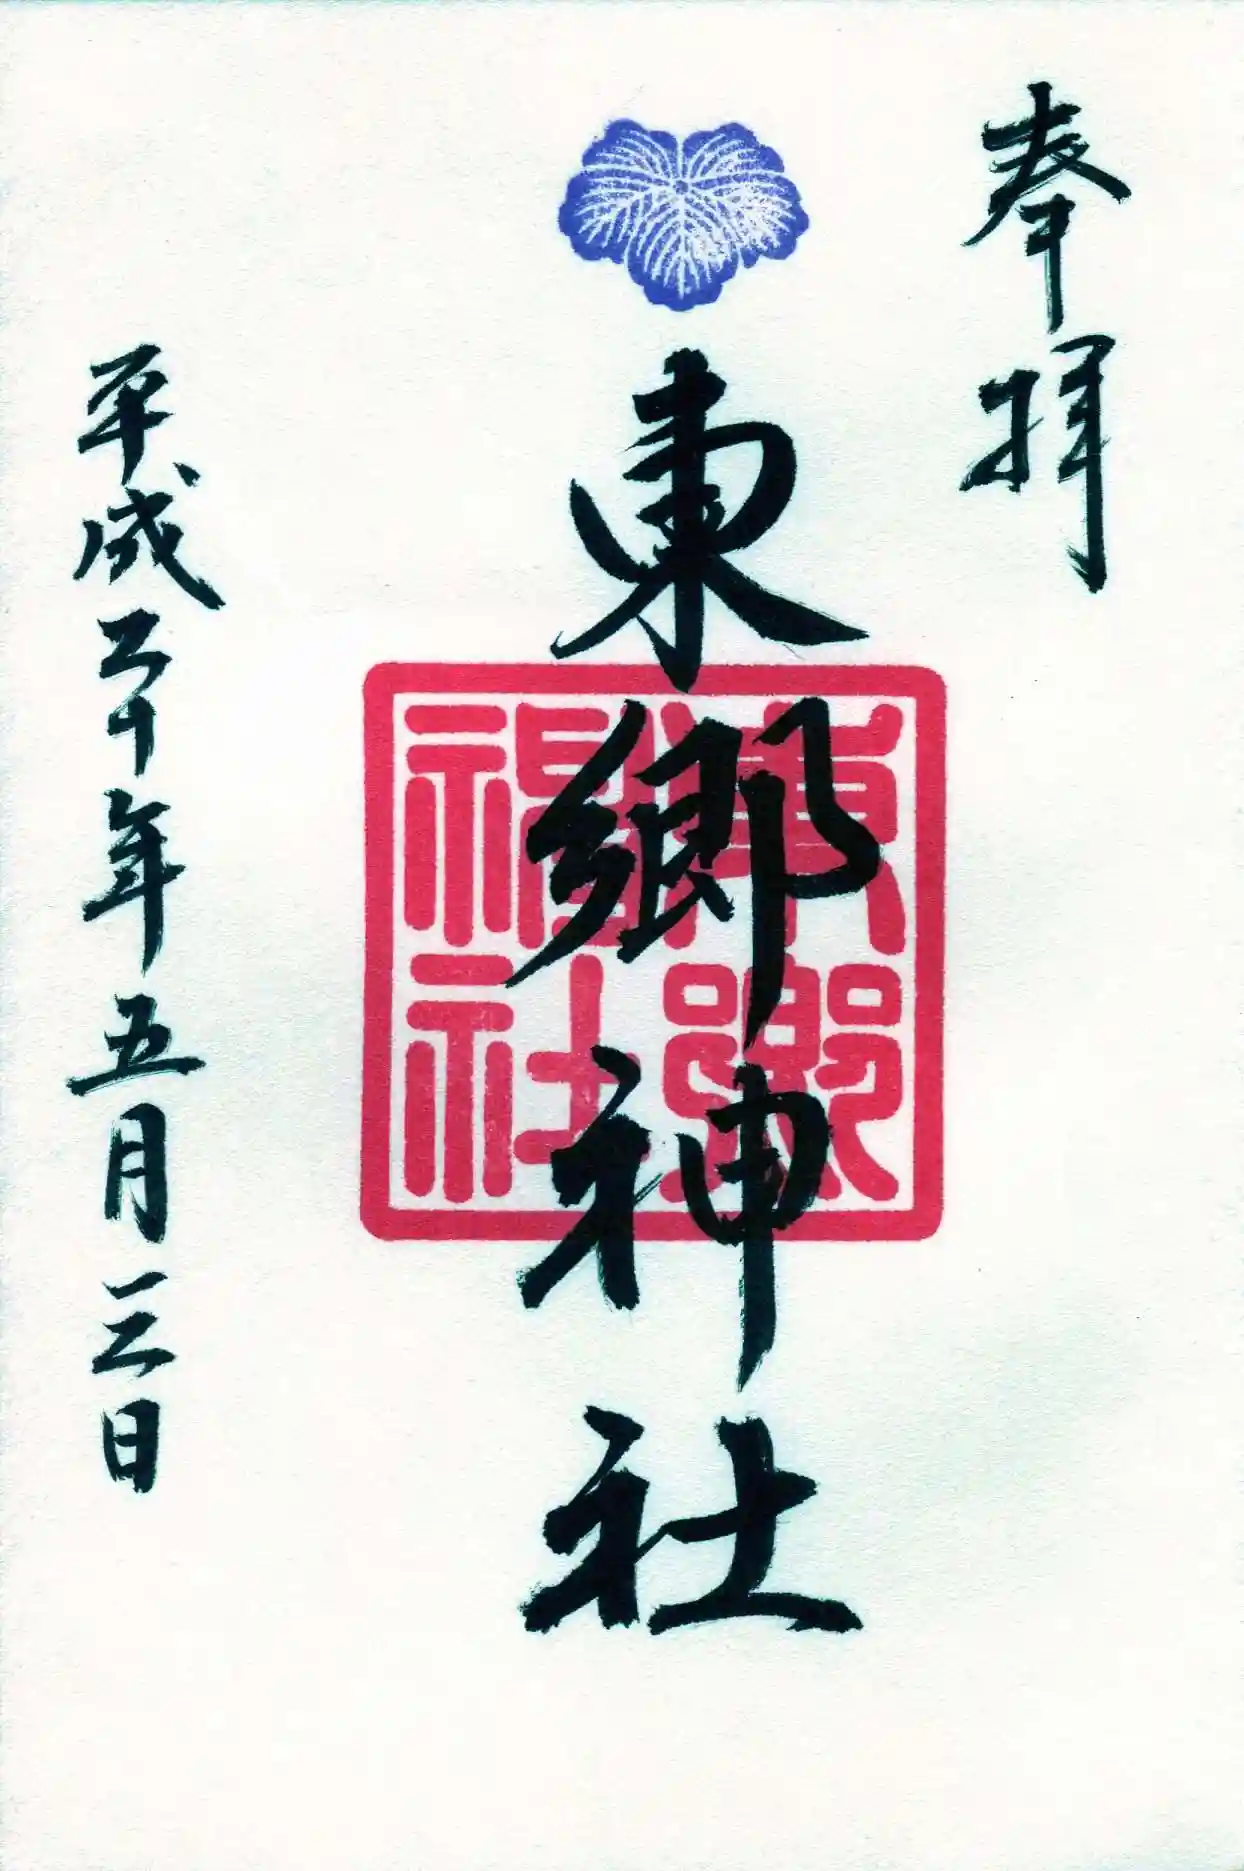 奉拝
東郷神社
東郷
神社
平成三十年五月三日